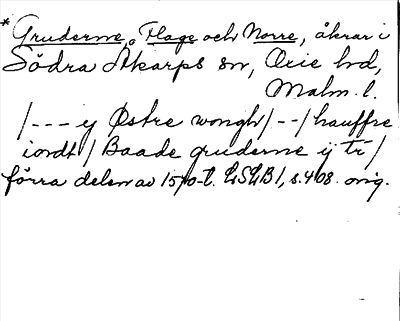 * Gruderne, Flage och Norre, åkrar i
Södra Åkarps sn, Oxie hd,
Malm. l.
/--- ej Østre wongh/--/hauffre
iordt/ Baade gruderne ij tr/
förra delen av 1570-t. LSLB 1, s. 408. orig.